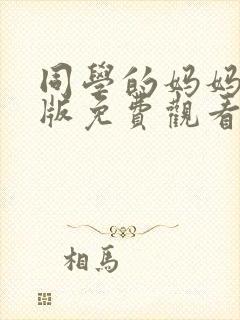 同學的妈妈
版免費觀看
相馬